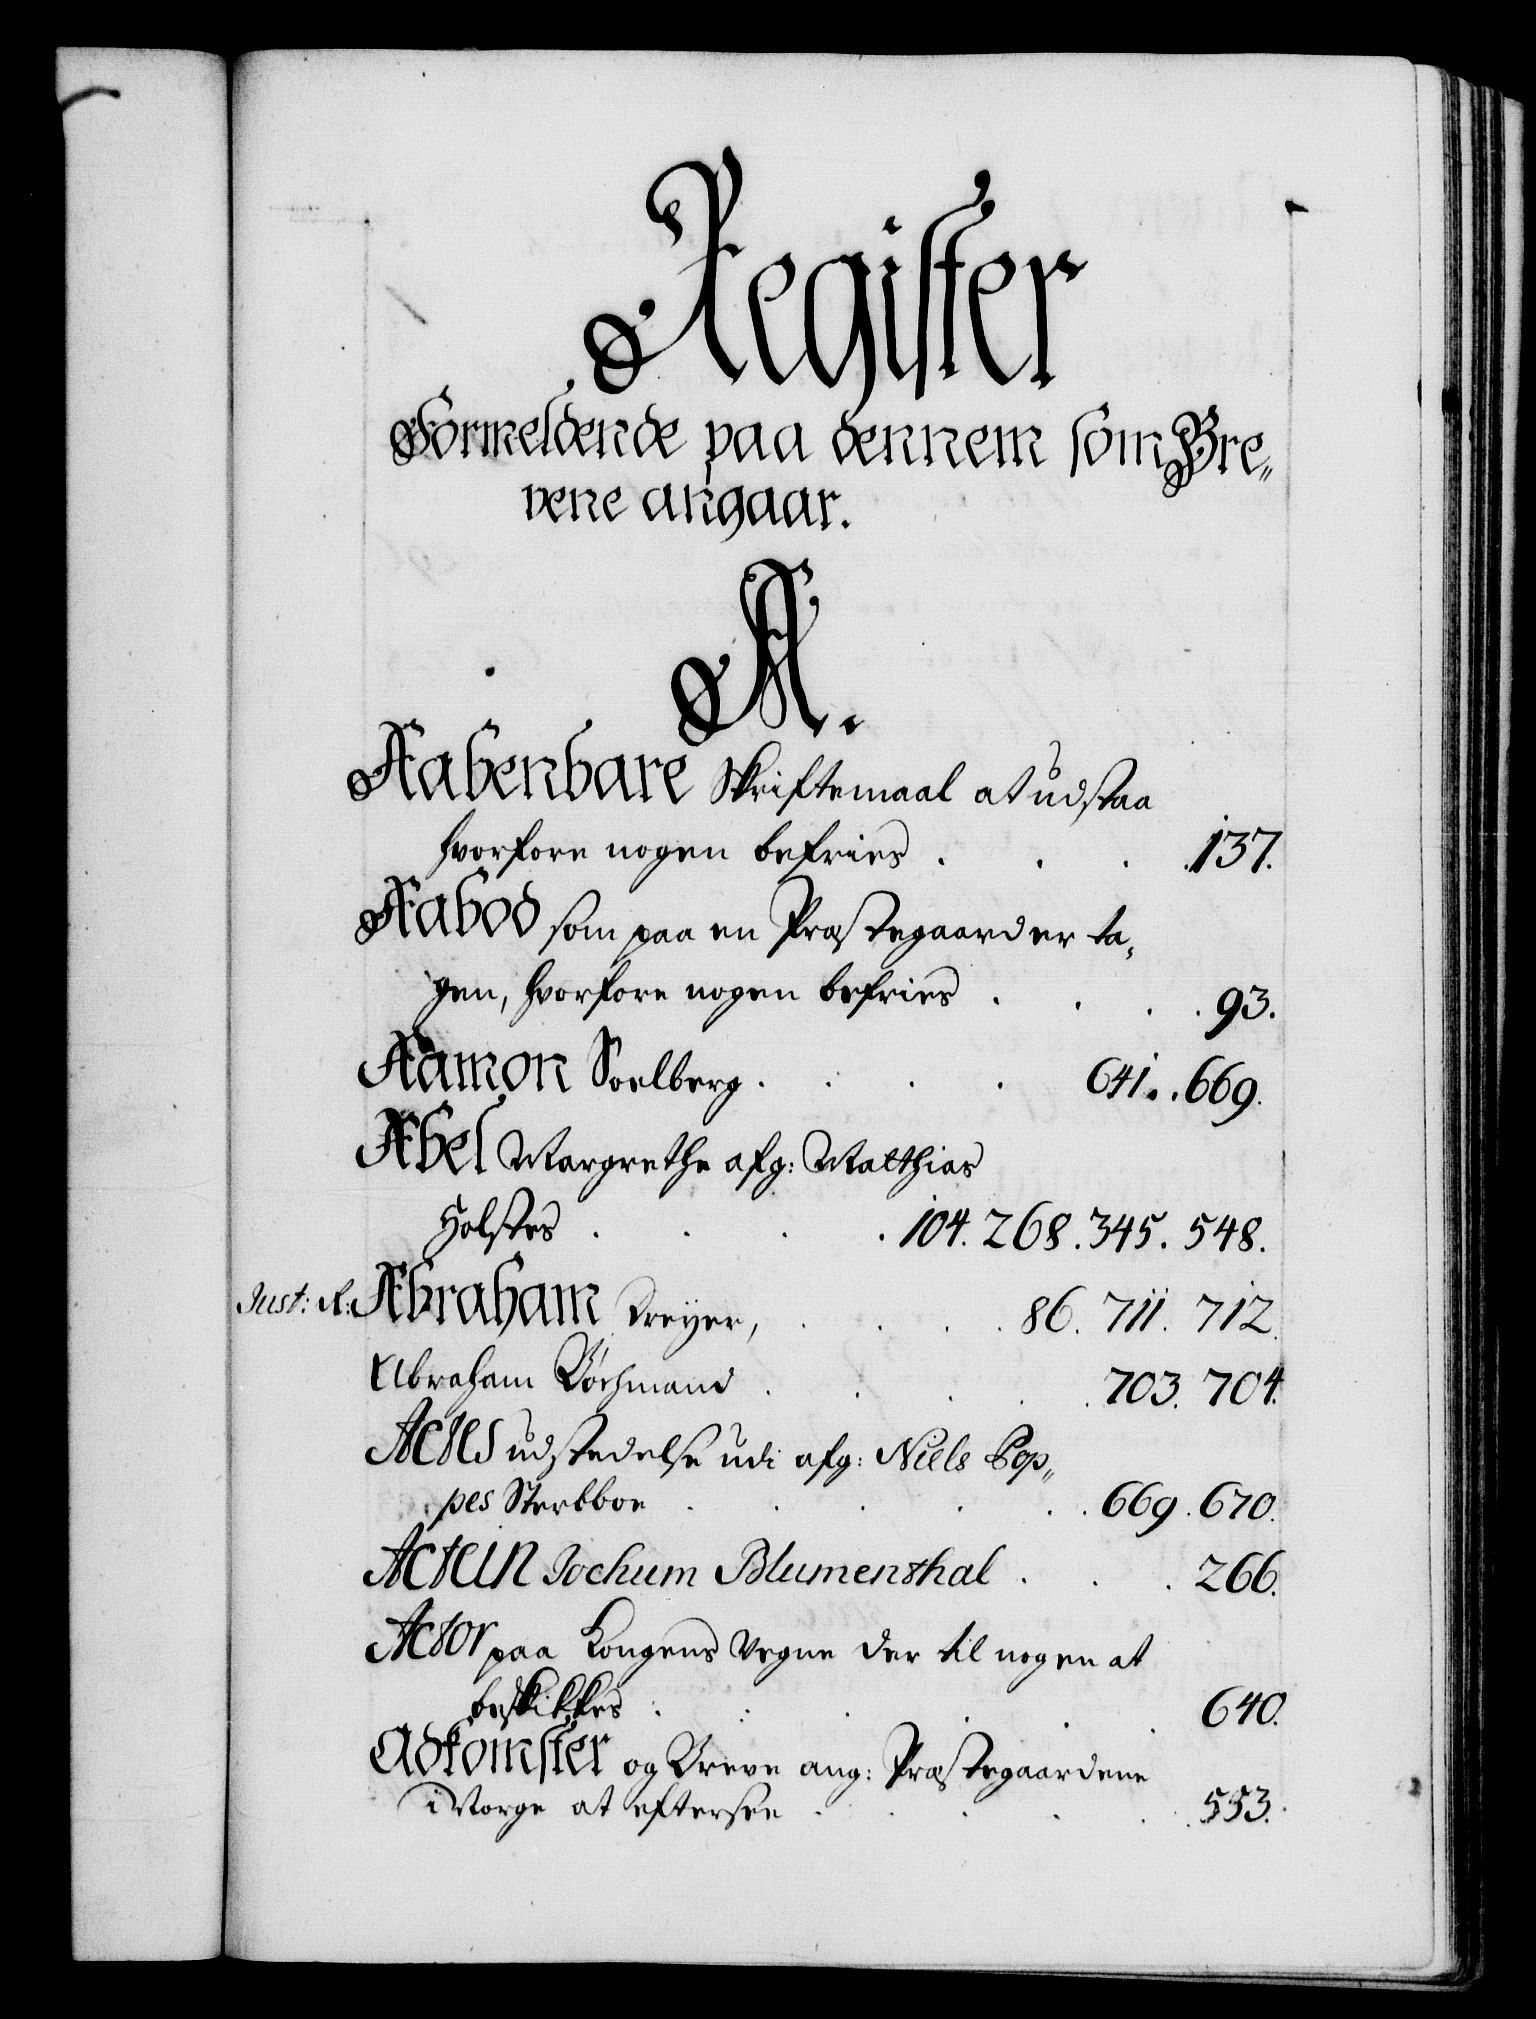 Register
Formeldende paa dennem som Bre„
vene angaar.
A.
Aabenbare Skriftemaal at udstaa
hvorfore nogen befries . . . . 137.
Aabod som paa en Præstegaard er ta„
gen, hvorfore nogen befries . . . . 93.
Aamon Soelberg . . . . 641. . 669.
Abel Margrethe afg: Matthias
Holstes . . . . 104. 268. 345. 548.
Just: R: Abraham Dreyer, . . . . 86. 711. 712.
Abraham Böchmand . . . . . 703. 704.
Actes udstedelse udi afg: Niels Pop„
pes Sterbboe . . . . . . 669. 670.
Actein Jochum Blumenthal . . . 266.
Actor paa Kongens Vegne der til nogen at
beskikkes . . . . . . 640.
Adkomster og Breve ang: Præstegaardene
i Norge at eftersee . . . . . . 553.